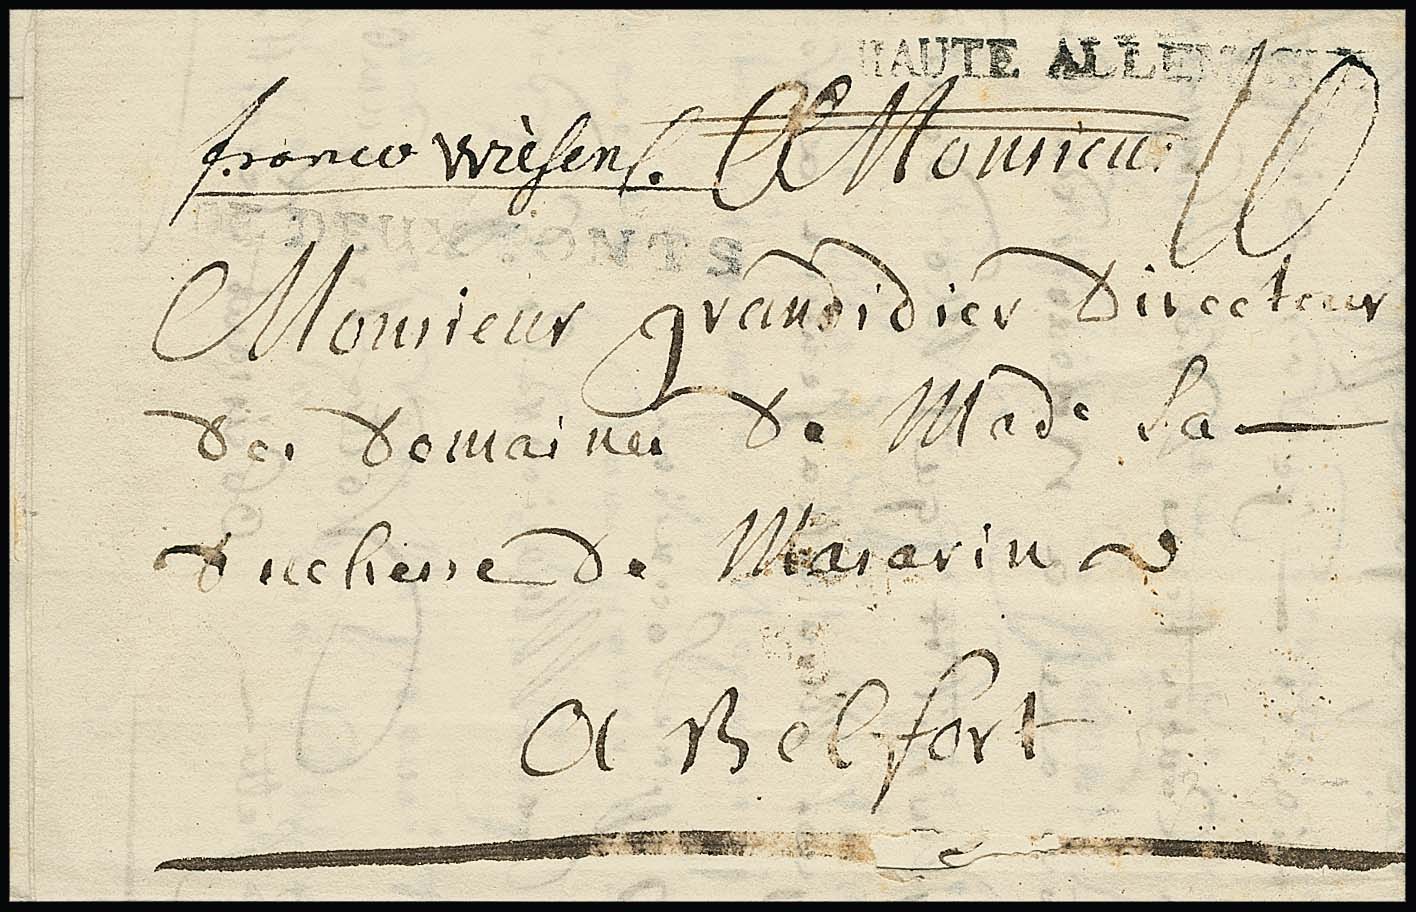 HAUTE ALLEMAGNE
franco Wiesens. A Monsieur 10
DE DEUXPONTS
Monsieur grandidier Directeur
Des Domaines De Made La
Duchesse De Masarin
A Belfort